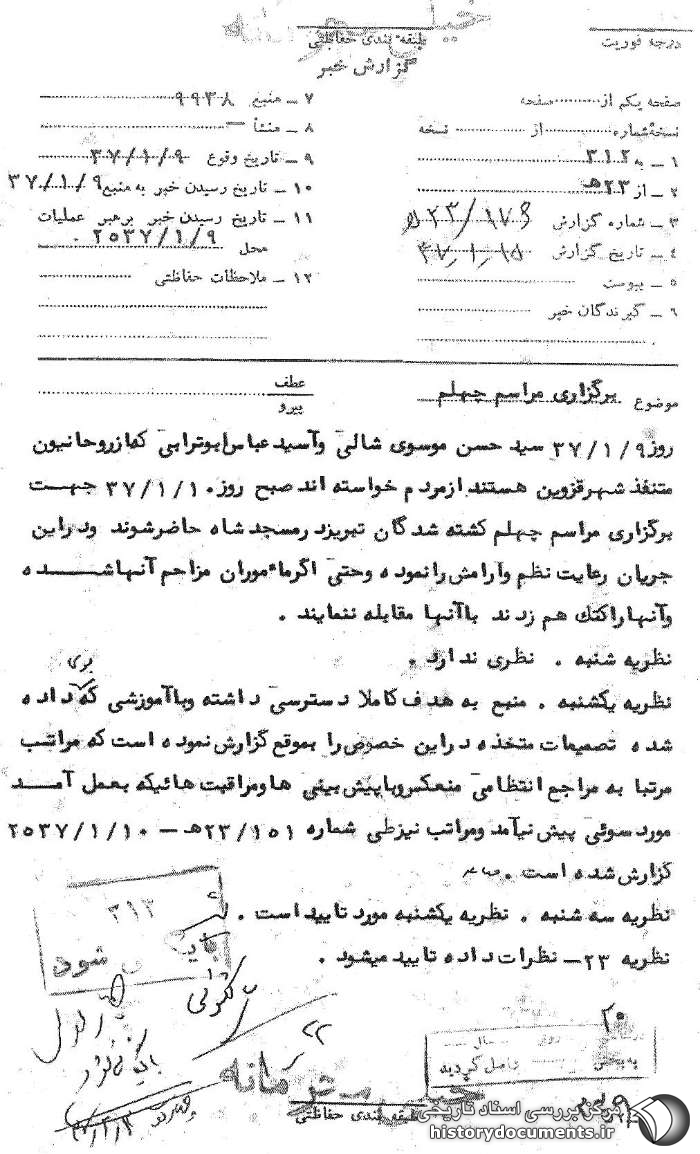 خیلی محرمانه
درجه فوریت
طبقه بندی حفاظتی
گزارش خبر
صفحه یکم از ........ صفحه
نسخهٔ شماره ........ از ........ نسخه
۱ ـ به ۳۱۲
۲ ـ از ۲۳هـ
۳ ـ شماره گزارش
۴ ـ تاریخ گزارش ۳۷/۱/۱۵
۵ ـ پیوست
۶ ـ گیرندگان خبر
۷ ـ منبع ۹۹۳۸
۸ ـ منشأ ـ
۹ ـ تاریخ وقوع ۳۷/۱/۹
۱۰ ـ تاریخ رسیدن خبر به منبع ۳۷/۱/۹
۱۱ ـ تاریخ رسیدن خبر برهبر عملیات
محل ۲۵۳۷/۱/۹ .
۱۲ ـ ملاحظات حفاظتی
موضوع برگزاری مراسم چهلم
عطف
پیرو
روز ۳۷/۱/۹ سید حسن موسوی شالی وآسید عباس ابوترابی که ازروحانیون
متنفذ شهرقزوین هستند ازمردم خواسته اند صبح روز ۳۷/۱/۱۰ جهت
برگزاری مراسم چهلم کشته شدگان تبریزدرمسجد شاه حاضرشوند ودراین
جریان رعایت نظم وآرامش رانموده وحتی اگرماءموران مزاحم آنهاشده
وآنهاراکتک هم زدند باآنها مقابله ننمایند .
نظریه شنبه . نظری ندارد .
نظریه یکشنبه . منبع به هدف کاملا دسترسی داشته وباآموزشی که بوی داده
شده تصمیمات متخذه دراین خصوص را بموقع گزارش نموده است که مراتب
مرتبا به مراجع انتظامی منعکس وباپیش بینی ها ومراقبت هائیکه بعمل آمد
مورد سوئی پیش نیآمد ومراتب نیزطی شماره ۲۳/۱۵۱هـ ـ ۲۵۳۷/۱/۱۰
گزارش شده است .
نظریه سه شنبه . نظریه یکشنبه مورد تایید است .
نظریه ۲۳ـ نظرات داده تایید میشود .
۳۱۲
شود
۲۰
روز سال
به بخش واصل گردید
خیلی محرمانه
طبقه بندی حفاظتی
مرکز بررسی اسناد تاریخی
historydocuments.ir